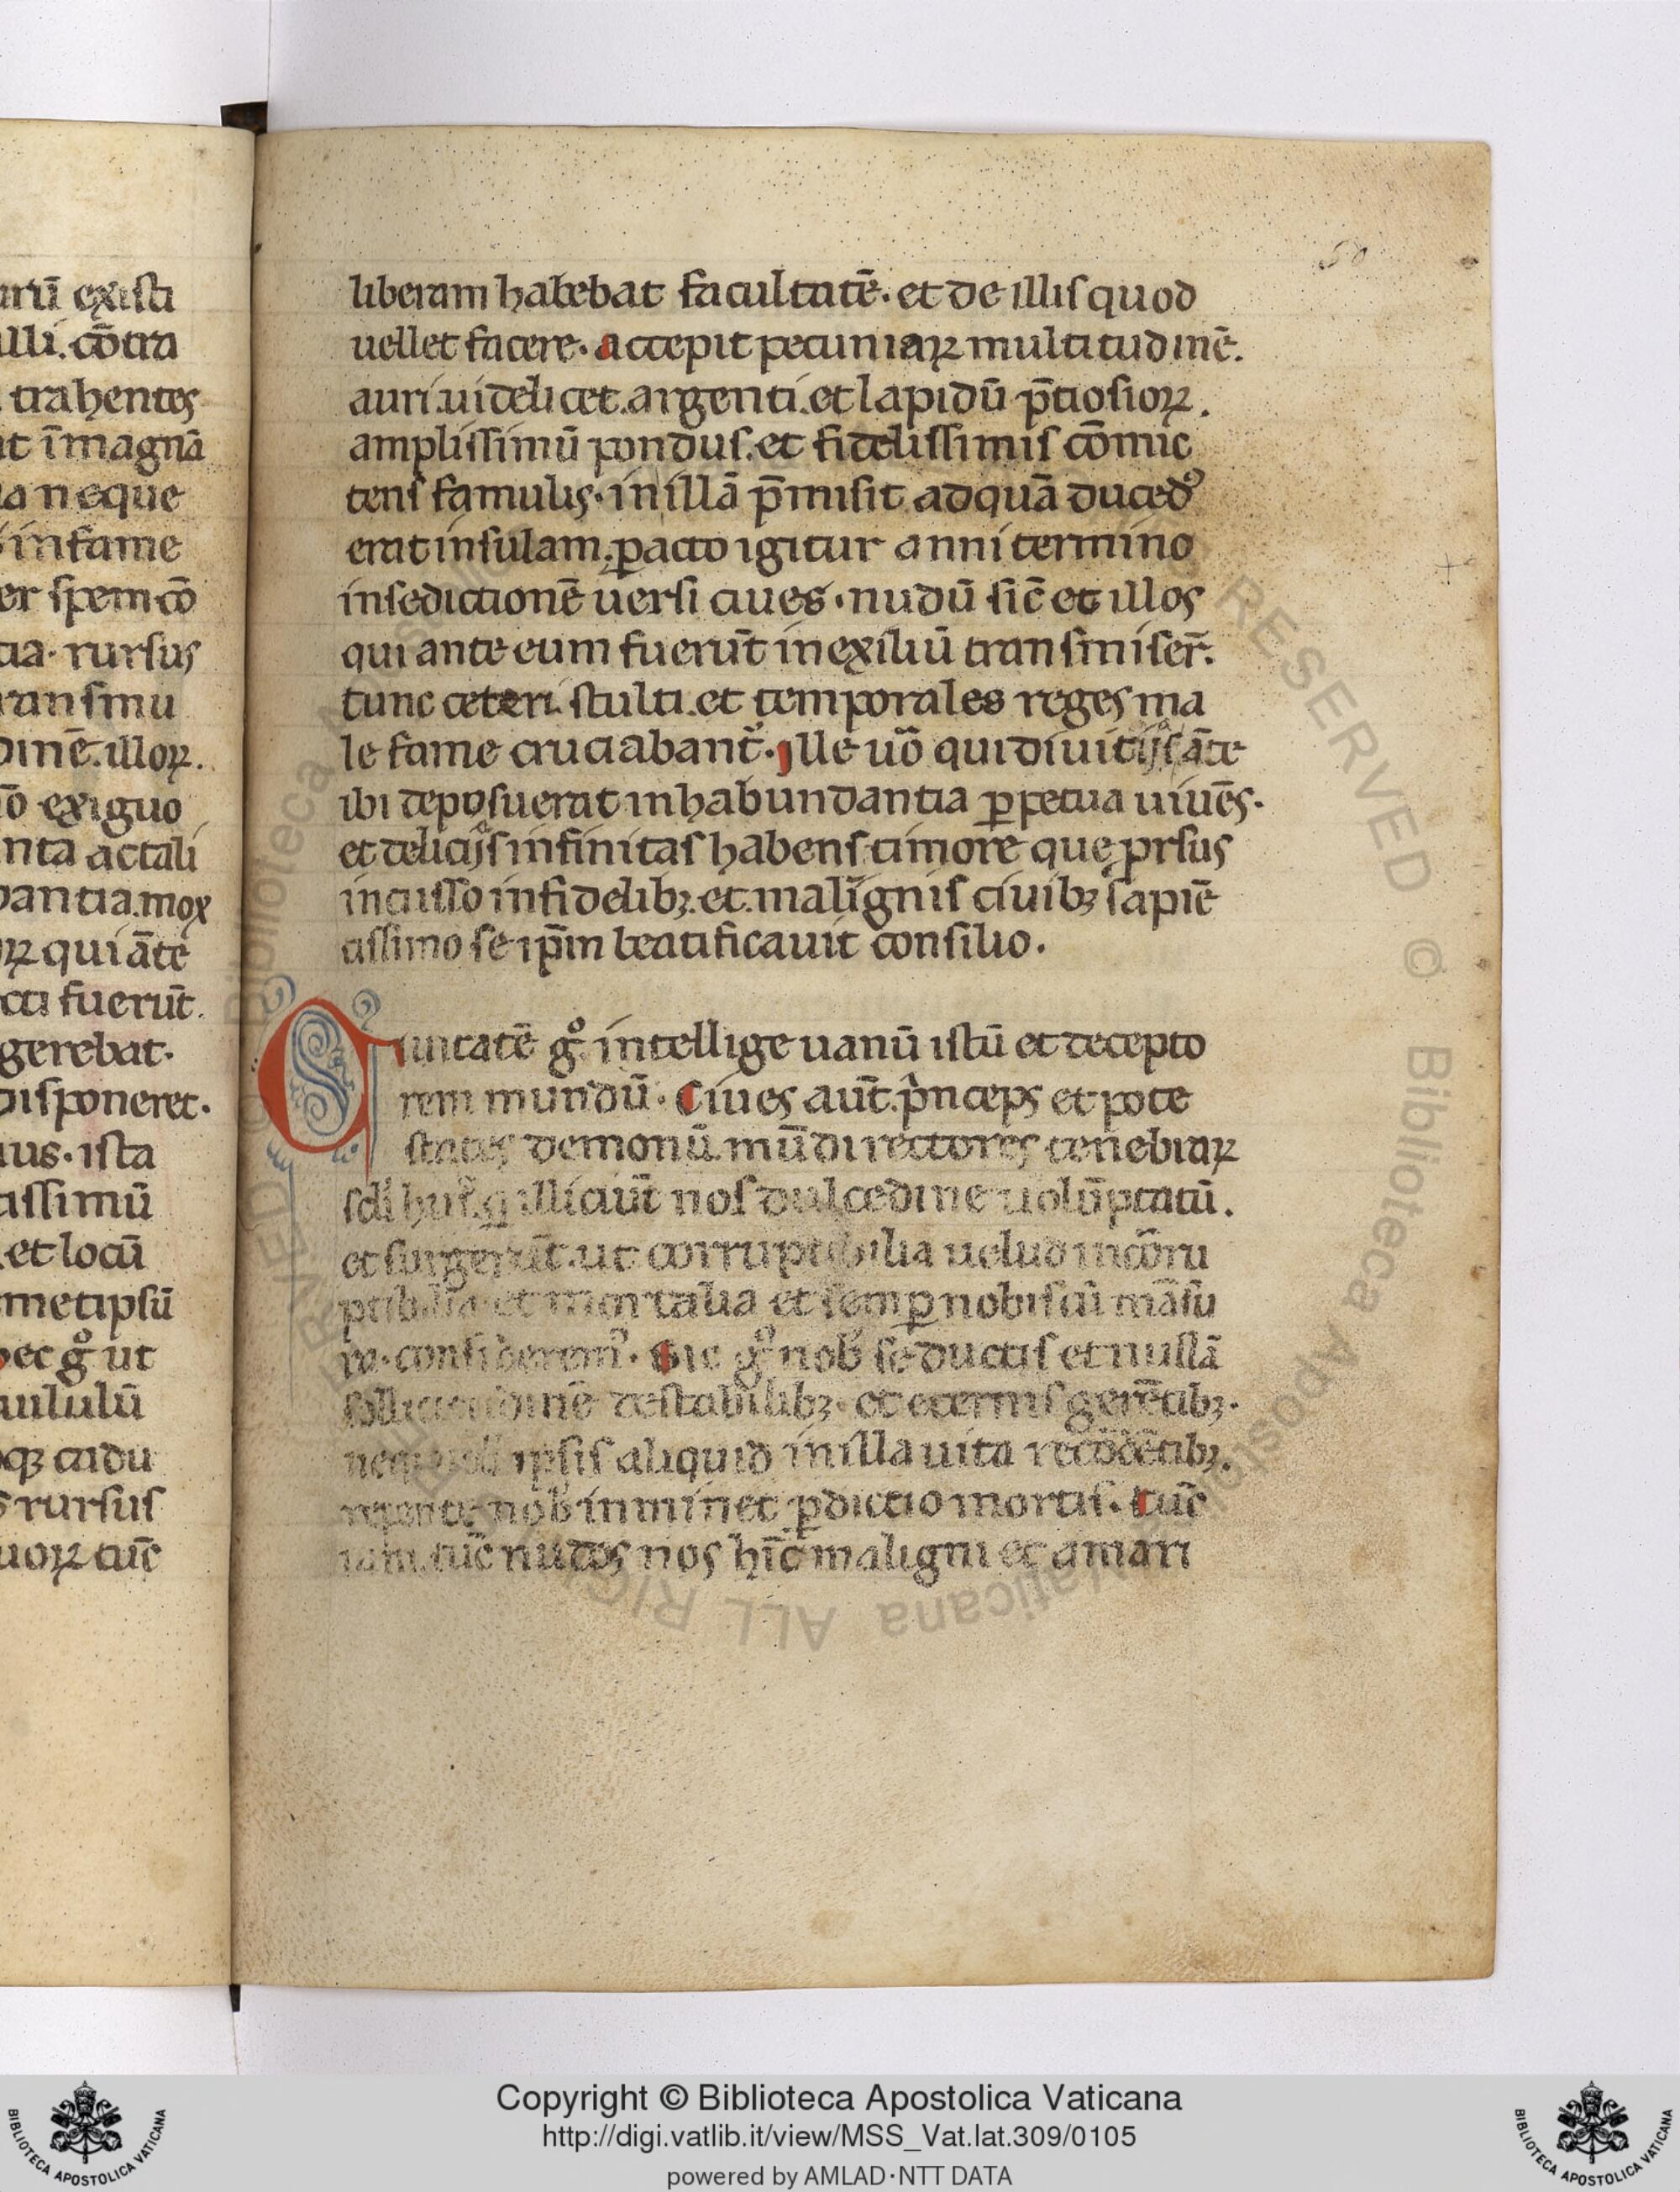 arū existi
alli. cōtra
trahentes
at ī magnā
ia neque
s infame
er spem cō
tia. rursus
ransmu
dinē. illoꝝ.
iō exiguo
nta actali
dantia. mox
oꝝ qui āte
cti fuerūt.
gerebat.
disponeret.
ius. ista
tissimū
et locū
metipsū
hec gͦ ut
uilulū
oqꝫ cadu
s rursus
uoꝝ tūc
50
liberam habebat facultatē. et de illis quod
uellet facere. accepit pecuniaꝝ multitudinē.
auri. uidelicet. argenti. et lapidū p̄tiosioꝝ.
amplissimū pondus. et fidelissimis cōmic
tens famulis. in illā p̄misit ad quā ducēdꝰ
erat insulam. ꝑacto igitur anni termino
in sedictionē uersi ciues. nudū sic̄ et illos
qui ante eum fuerūt in exiliū transmiser̄.
tunc ceteri. stulti. et temporales reges ma
le fame cruciabant᷑. ille uō qui diuitijs āte
ibi deposuerat in habundantia ꝑpetua uiuēs.
et delicijs infinitas habens. timore que prsus
incusso infidelibꝫ. et malignis ciuibꝫ sapiē
tissimo se ip̄m beatificauit consilio.
Ciuitatē gͦ intellige uanū istū et decepto
rem mundū. Ciues aūt. princeps et pote
states demonū. mūdi rectores tenebraꝝ
scl̄i huiꝰ. q illiciūt nos dulcedine uolūptatū.
et surgerūt. ut corruptibilia uelud incōru
ptibilia. et mortalia et semꝑ nobiscū māsu
ra. consideremꝰ. Sic gͦ nob̄ seductis et nullā
sollicitudinē de stabilibꝫ. et eternis gerētibꝫ.
ipsis aliquid in illa uita recōdētibꝫ.
repente nob̄ inminet ꝑdictio mortis. tūc
iam. tūc nudos nos hīc maligni et amari
Copyright © Biblioteca Apostolica Vaticana
http://digi.vatlib.it/view/MSS_Vat.lat.309/0105
powered by AMLAD·NTT DATA
BIBLIOTECA APOSTOLICA VATICANA
BIBLIOTECA APOSTOLICA VATICANA